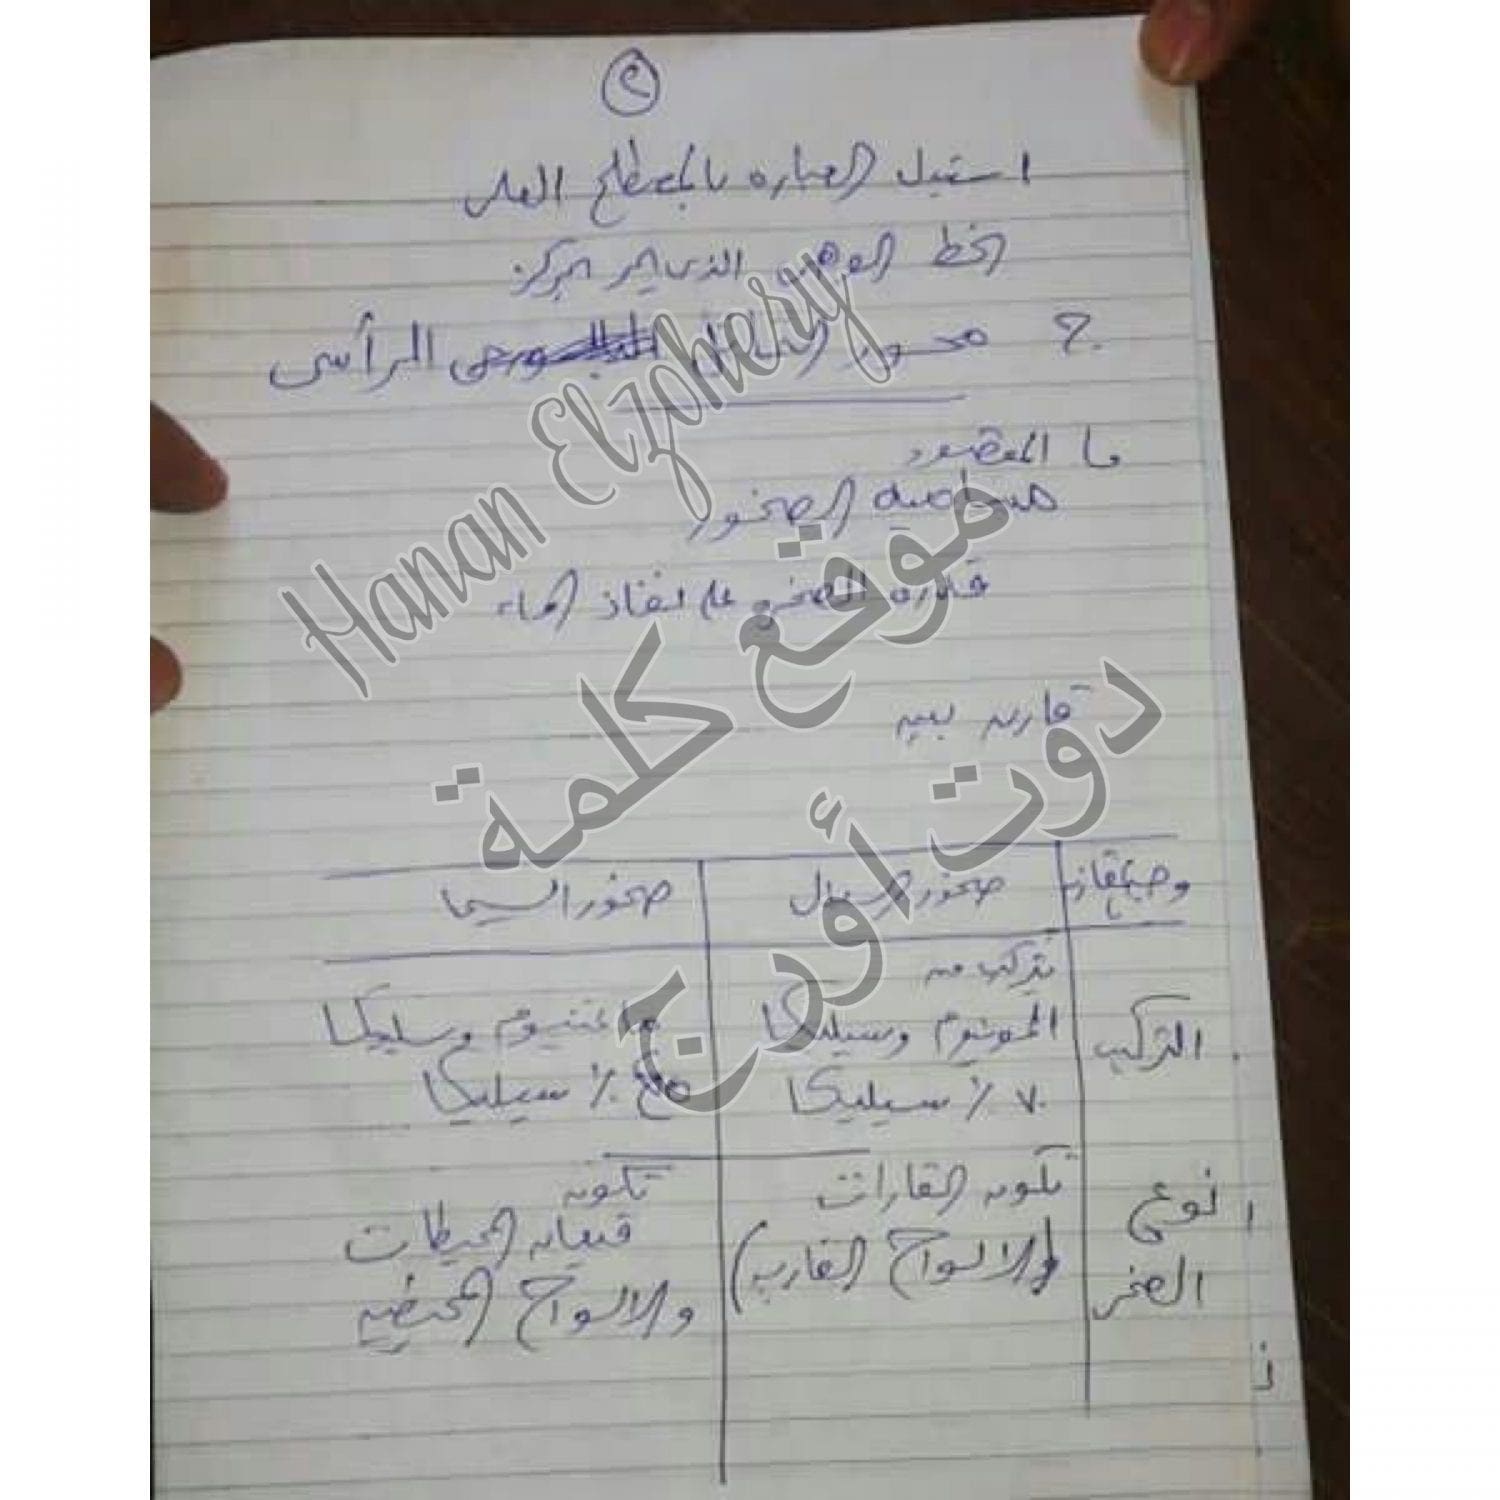 ٩
استبدل العباره بالمصطلح العلمى
الخط الوهمى الذى يمر بمركز
ج محور التماثل الرأسى
ما المقصود
مسامية الصخور
قدرة الصخر على نفاذ الماء
قارن بين
وجه المقارنة صخور السيال صخور السيما
التركيب
تتركب من
الومنيوم وسيليكا
٧٠٪ سيليكا
ماغنسيوم وسليكا
٪ سيليكا
نوع
الصخر
تكون القارات
والالواح القارية)
تكون
قيعان المحيطات
والالواح المحيطية
Hanan Elzohery
موقع كلمة
دوت أورج